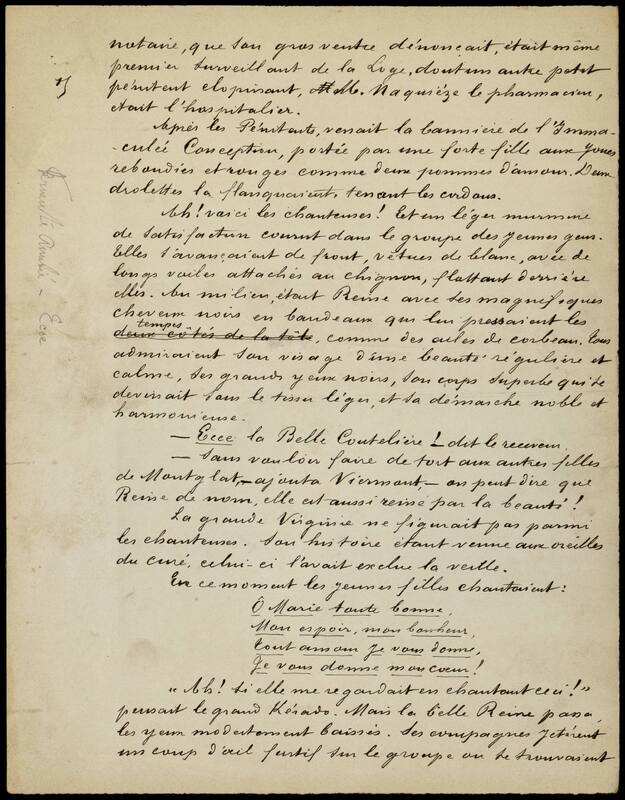 notaire, que son gros ventre dénonçait, était même
premier surveillant de la Loge, dont un autre petit
pénitent clopinant, M. Naquièze le pharmacien,
était l'hospitalier.
Après les Pénitents, venait la bannière de l'Imma-
-culée Conception, portée par une forte fille aux joues
rebondies et rouges comme deux pommes d'amour. Deux
drolettes la flanquaient, tenant les cordons.
Ah! voici les chanteuses! Et un léger murmure
de satisfaction courut dans le groupe des jeunes gens.
Elles s'avançaient de front, vêtues de blanc, avec de
longs voiles attachés au chignon, flottant derrière
elles. Au milieu, était Reine avec ses magnifiques
cheveux noirs en bandeaux qui lui pressaient les
tempes
deux côtés de la tête, comme des ailes de corbeau. Tous
admiraient son visage d'une beauté régulière et
calme, ses grands yeux noirs, son corps superbe qui se
devinait sous le tissu léger, et sa démarche noble et
harmonieuse.
— Ecce la Belle Coutelière! dit le receveur.
— Sans vouloir faire de tort aux autres filles
de Montglat, — ajouta Viermont, — on peut dire que
Reine de nom, elle est aussi reine par la beauté!
La grande Virginie ne figurait pas parmi
les chanteuses. Son histoire étant venue aux oreilles
du curé, celui-ci l'avait exclue la veille.
En ce moment les jeunes filles chantaient:
Ô Marie toute bonne,
Mon espoir, mon bonheur,
Tout amour je vous donne,
Je vous donne mon cœur!
"Ah! si elle me regardait en chantant ceci!"
pensait le grand Kérado. Mais la belle Reine passa,
les yeux modestement baissés. Ses compagnes jetèrent
un coup d'œil furtif sur le groupe où se trouvaient
Ecce